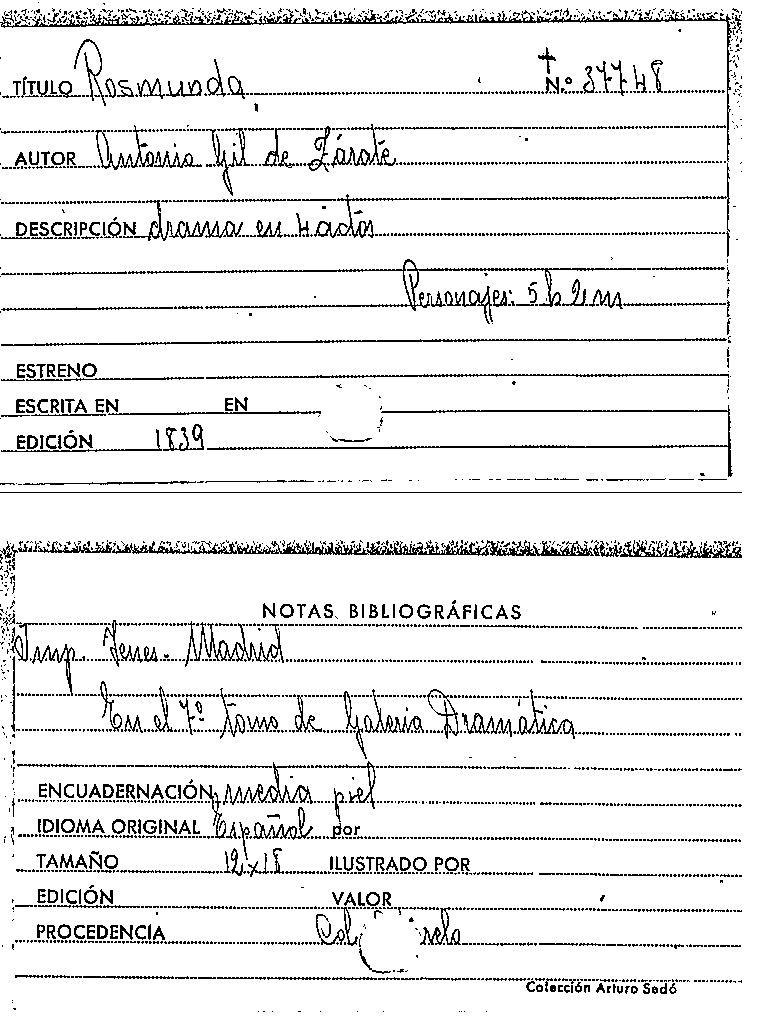 TÍTULO Rosmunda N.º 37748
AUTOR Antonio Gil de Zárate
DESCRIPCIÓN drama en 4 actos
Personajes: 5 h 2 m
ESTRENO
ESCRITA EN EN
EDICIÓN 1839
NOTAS BIBLIOGRÁFICAS
Imp. Yenes. Madrid
En el 7º tomo de Galeria Dramática
ENCUADERNACIÓN media piel
IDIOMA ORIGINAL Español por
TAMAÑO 12x18 ILUSTRADO POR
EDICIÓN VALOR
PROCEDENCIA Col
Colección Arturo Sedó